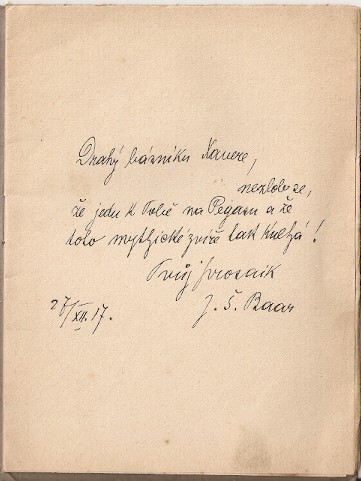 Drahý básníku Xavere,
nezlob se,
že jedu k Tobě na Pegasu a že
toto mythické zvíře tak kulhá!
Tvůj prosaik
J. Š. Baar
27/XII. 17.